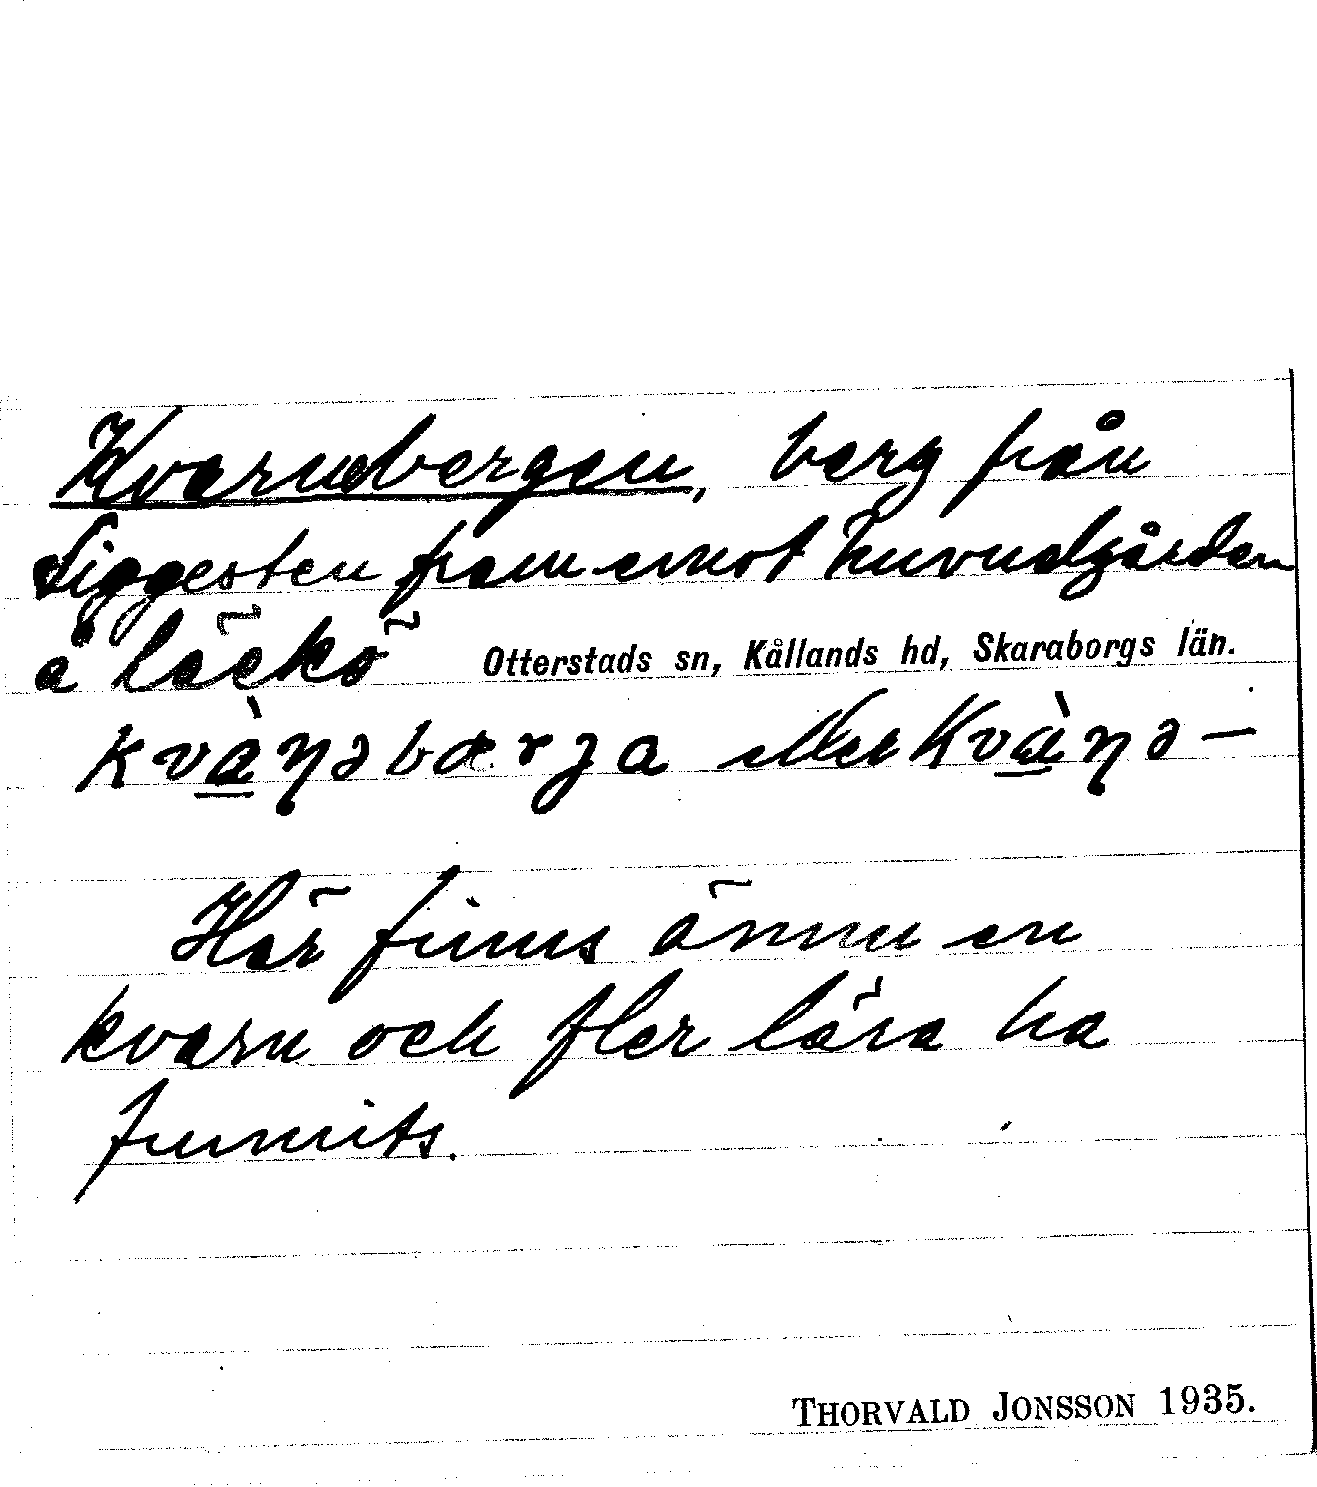 Kvarnebergen, berg från
Siggesten fram emot huvudgården
å Läckö Otterstads sn, Kållands hd, Skaraborgs län.
kvàṇəbærja eller Kvàṇə-
Här finns ännu en
kvarn och fler lära ha
funnits.
THORVALD JONSSON 1935.